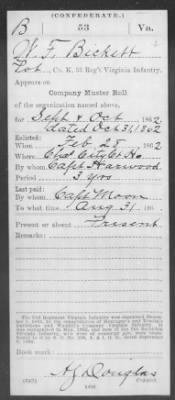 (CONFEDERATE.)
B 53 Va.
W. F. Bickett
Pvt, Co. K, 53 Reg't Virginia Infantry.
Appears on
Company Muster Roll
of the organization named above,
for Sept & Oct 1862
dated Oct 31, 1862
Enlisted:
When Feb 25 1862
Where Chas City C. Ho.
By whom Capt Harwood
Period 3 Yrs
Last paid:
By whom Capt Moon
To what time Aug 31 186
Present or absent Present
Remarks:
Book mark:
A J Douglas
Copyist.